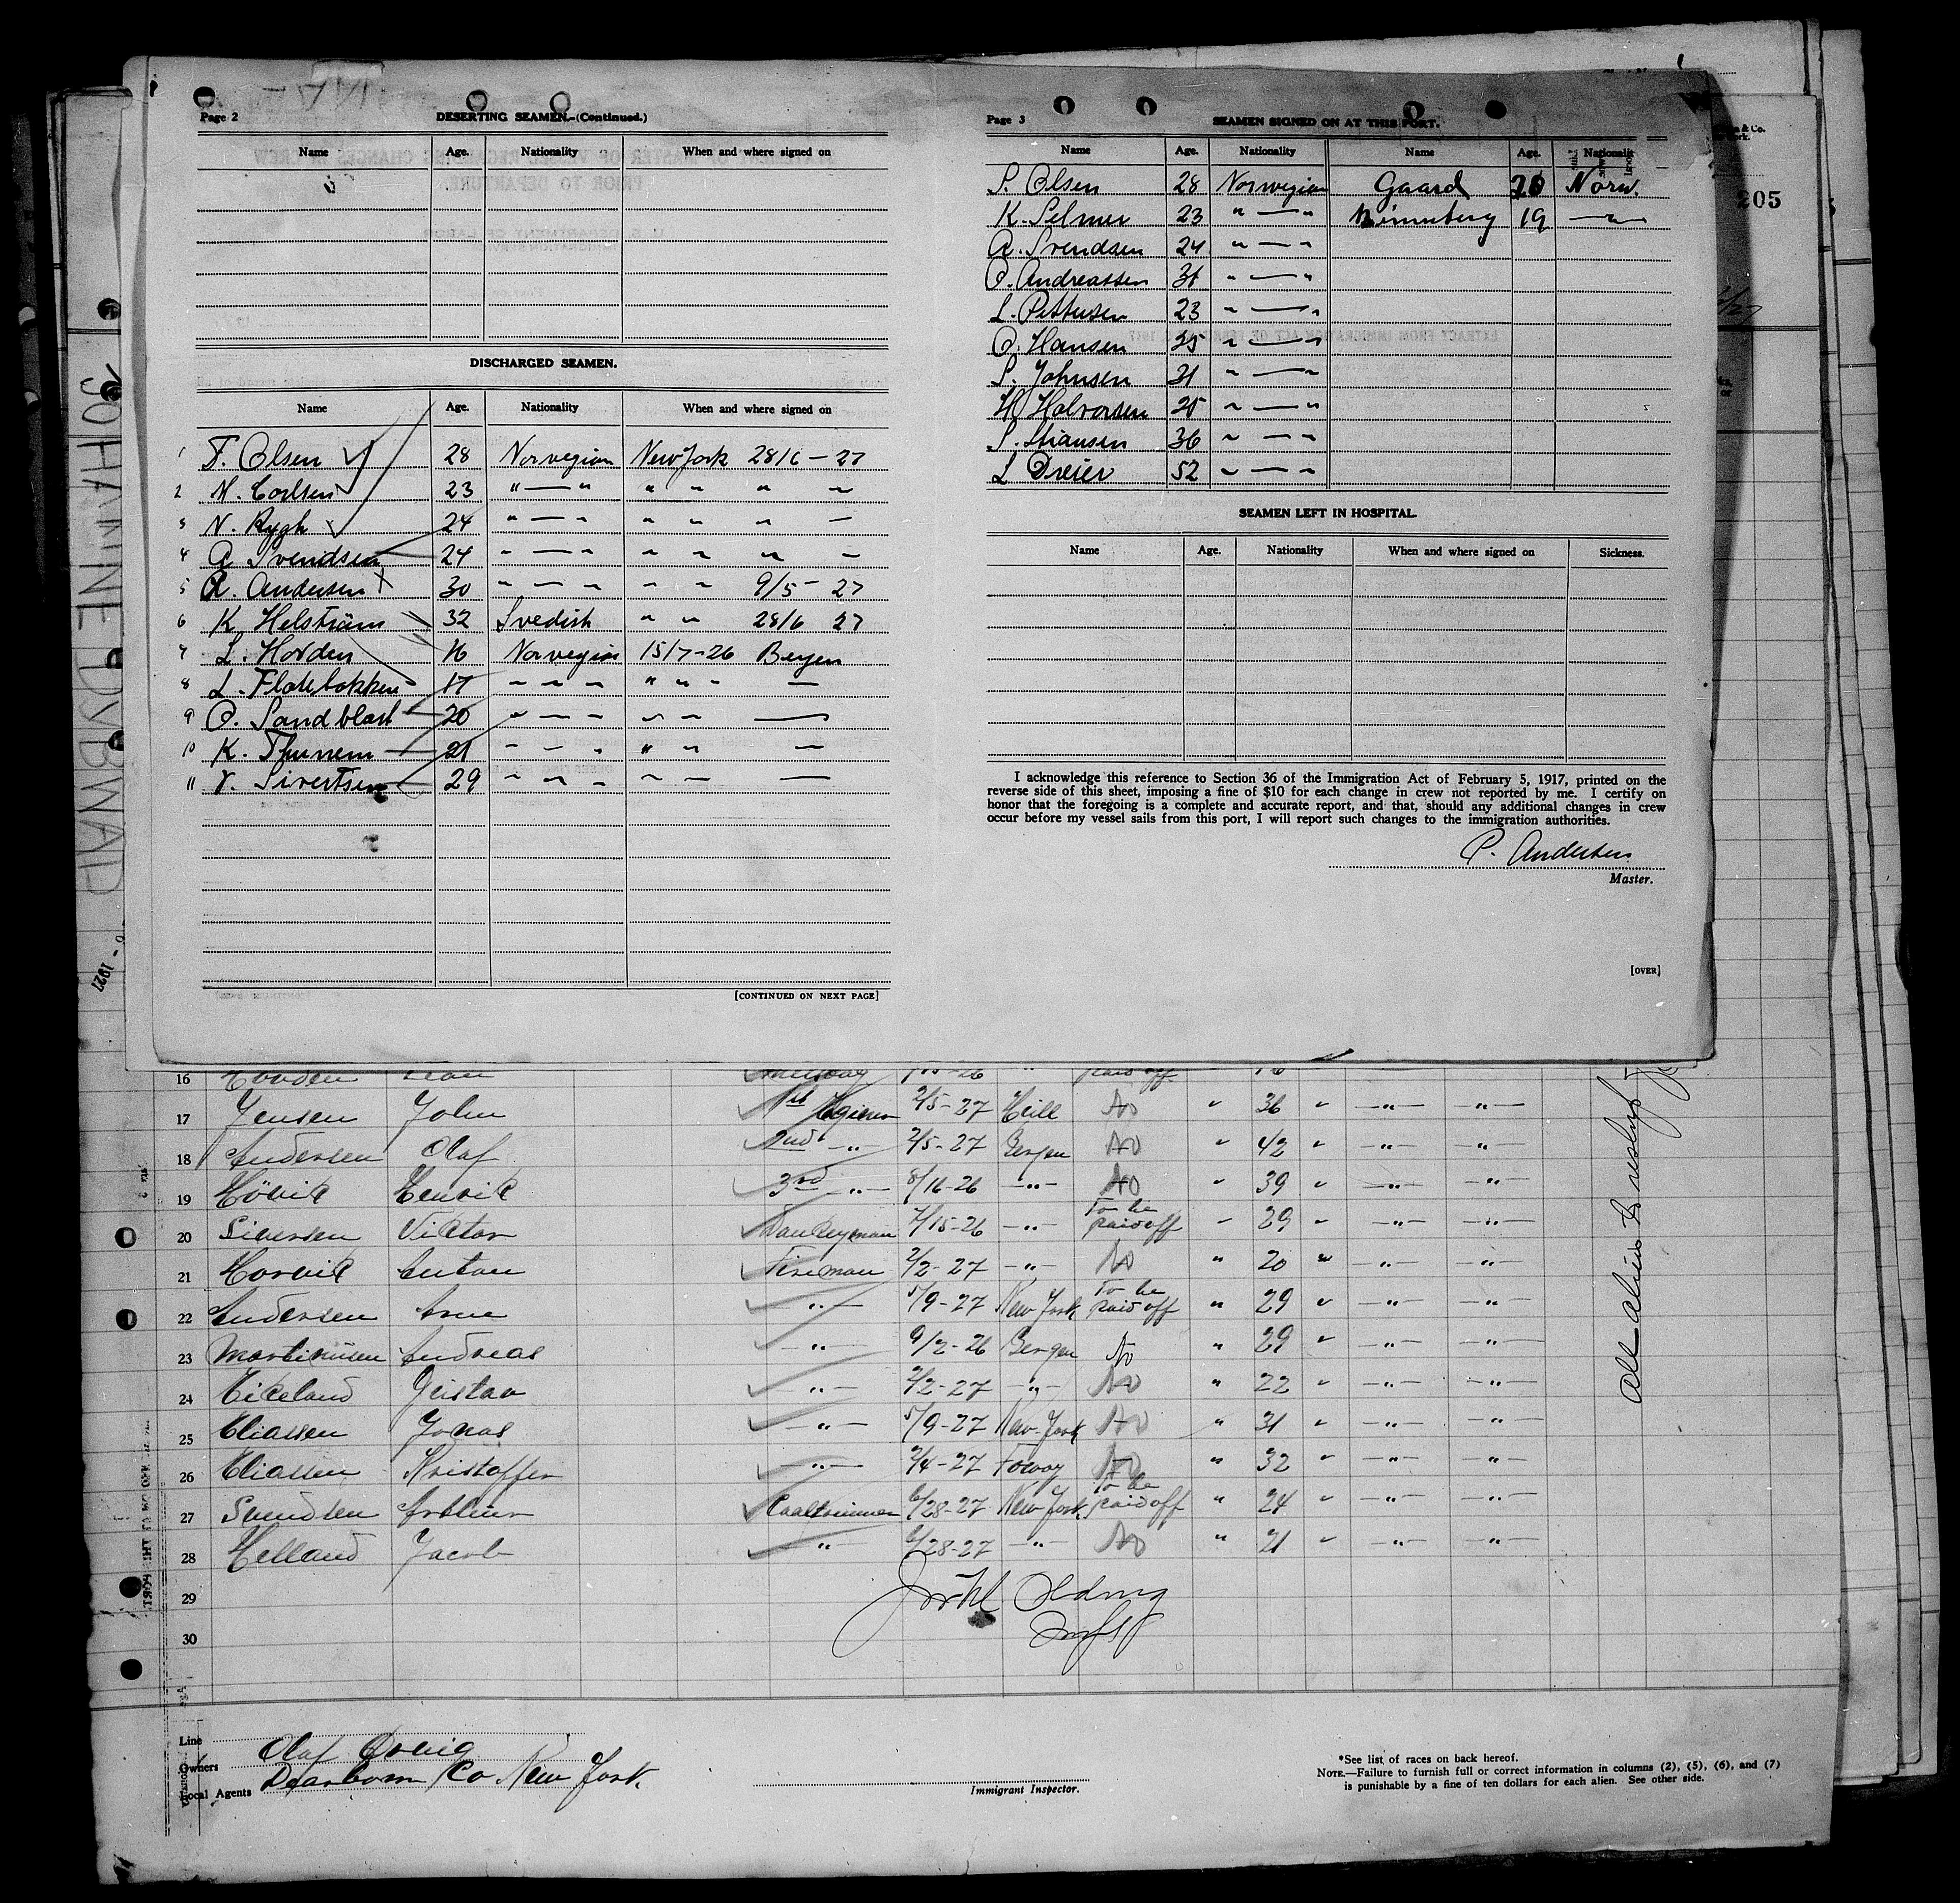 Page 2
DESERTING SEAMEN.-(Continued.)
Name Age. Nationality When and where signed on
DISCHARGED SEAMEN.
Name Age. Nationality When and where signed on
1 F. Olsen 28 Norvegian New York 28/6 - 27
2 N. Carlsen 23 " — " " " " "
3 N. Rygh 24 " — " " " " —
4 A Svendsen 24 " — " " " " —
5 A. Andersen X 30 " — " " " 9/5 - 27
6 K Helström 32 Svedish " " 28/6 27
7 L. Horden 16 Norvegian 15/7-26 Bergen
8 L. Flatebakken 17 " — " " " " —
9 O. Sandblast 20 " — " " " —
10 K. 21 " — " " " —
11 V. Sivertsen 29 " " " " " —
[CONTINUED ON NEXT PAGE]
Page 3
SEAMEN SIGNED ON AT THIS PORT.
Name Age. Nationality Name Age. Nationalit
S. Olsen 28 Norvegian Gaard 20 Norw.
K. Selmer 23 " — " 19 — " —
A. Svendsen 24 " — "
O. Andreassen 31 " — "
L. Pettersen 23 " — "
O. Hansen 35 " — "
S. Johnsen 31 " — "
H Halvorsen 25 " — "
S. Stiansen 36 " — "
L Dreier 52 " — "
SEAMEN LEFT IN HOSPITAL.
Name Age. Nationality When and where signed on Sickness.
I acknowledge this reference to Section 36 of the Immigration Act of February 5, 1917, printed on the
reverse side of this sheet, imposing a fine of $10 for each change in crew not reported by me. I certify on
honor that the foregoing is a complete and accurate report, and that, should any additional changes in crew
occur before my vessel sails from this port, I will report such changes to the immigration authorities.
P. Andersen
Master.
[OVER]
205
JOHANNE DYBWAD
1927
16 paid off 16
17 Jensen John 1st 2/5-27 No " 36 " — " — — " —
18 Andersen Olaf 2nd — " — 2/5-27 Bergen No " 42 " — " — — " —
19 Hövik Henrik 3rd — " — 8/16-26 — " — No " 39 " — " — — " —
20 Siversen Viktor Donkeyman 7/15-26 — " — To be paid off " 29 " — " — — " —
21 Horvik Anton Fireman 2/2-27 — " — No " 20 " — " — — " —
22 Andersen Arne — " — 5/9-27 New York To be paid off " 29 " — " — — " —
23 Martinusen Andreas — " — 9/2-26 Bergen No " 29 " — " — — " —
24 Eikeland Gustav — " — 2/2-27 — " — No " 22 " — " — — " —
25 Eliassen Jonas — " — 5/9-27 New-York No " 31 " — " — — " —
26 Eliassen Kristoffer — " — 2/4-27 No " 32 " — " — — " —
27 Svendsen Arthur Coaltrimmer 6/28-27 New York To be paid off " 24 " — " — — " —
28 Helland Jacob — " — 6/28-27 — " — No " 21 " — " — — " —
29
30
All aliens
Line
Owners Olaf Örvig
Local Agents Dearborn Co New York.
Immigrant Inspector.
*See list of races on back hereof.
NOTE.—Failure to furnish full or correct information in columns (2), (5), (6), and (7)
is punishable by a fine of ten dollars for each alien. See other side.